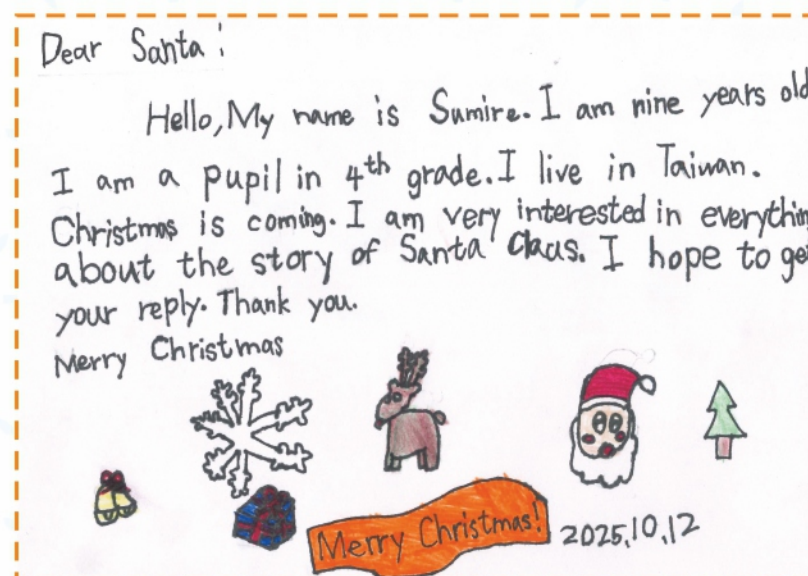 Dear Santa:
Hello, My name is Sumire. I am nine years old
I am a pupil in 4th grade. I live in Taiwan.
Christmas is coming. I am very interested in everythin
about the story of Santa Claus. I hope to ge
your reply. Thank you.
Merry Christmas
Merry Christmas!
2025.10.12